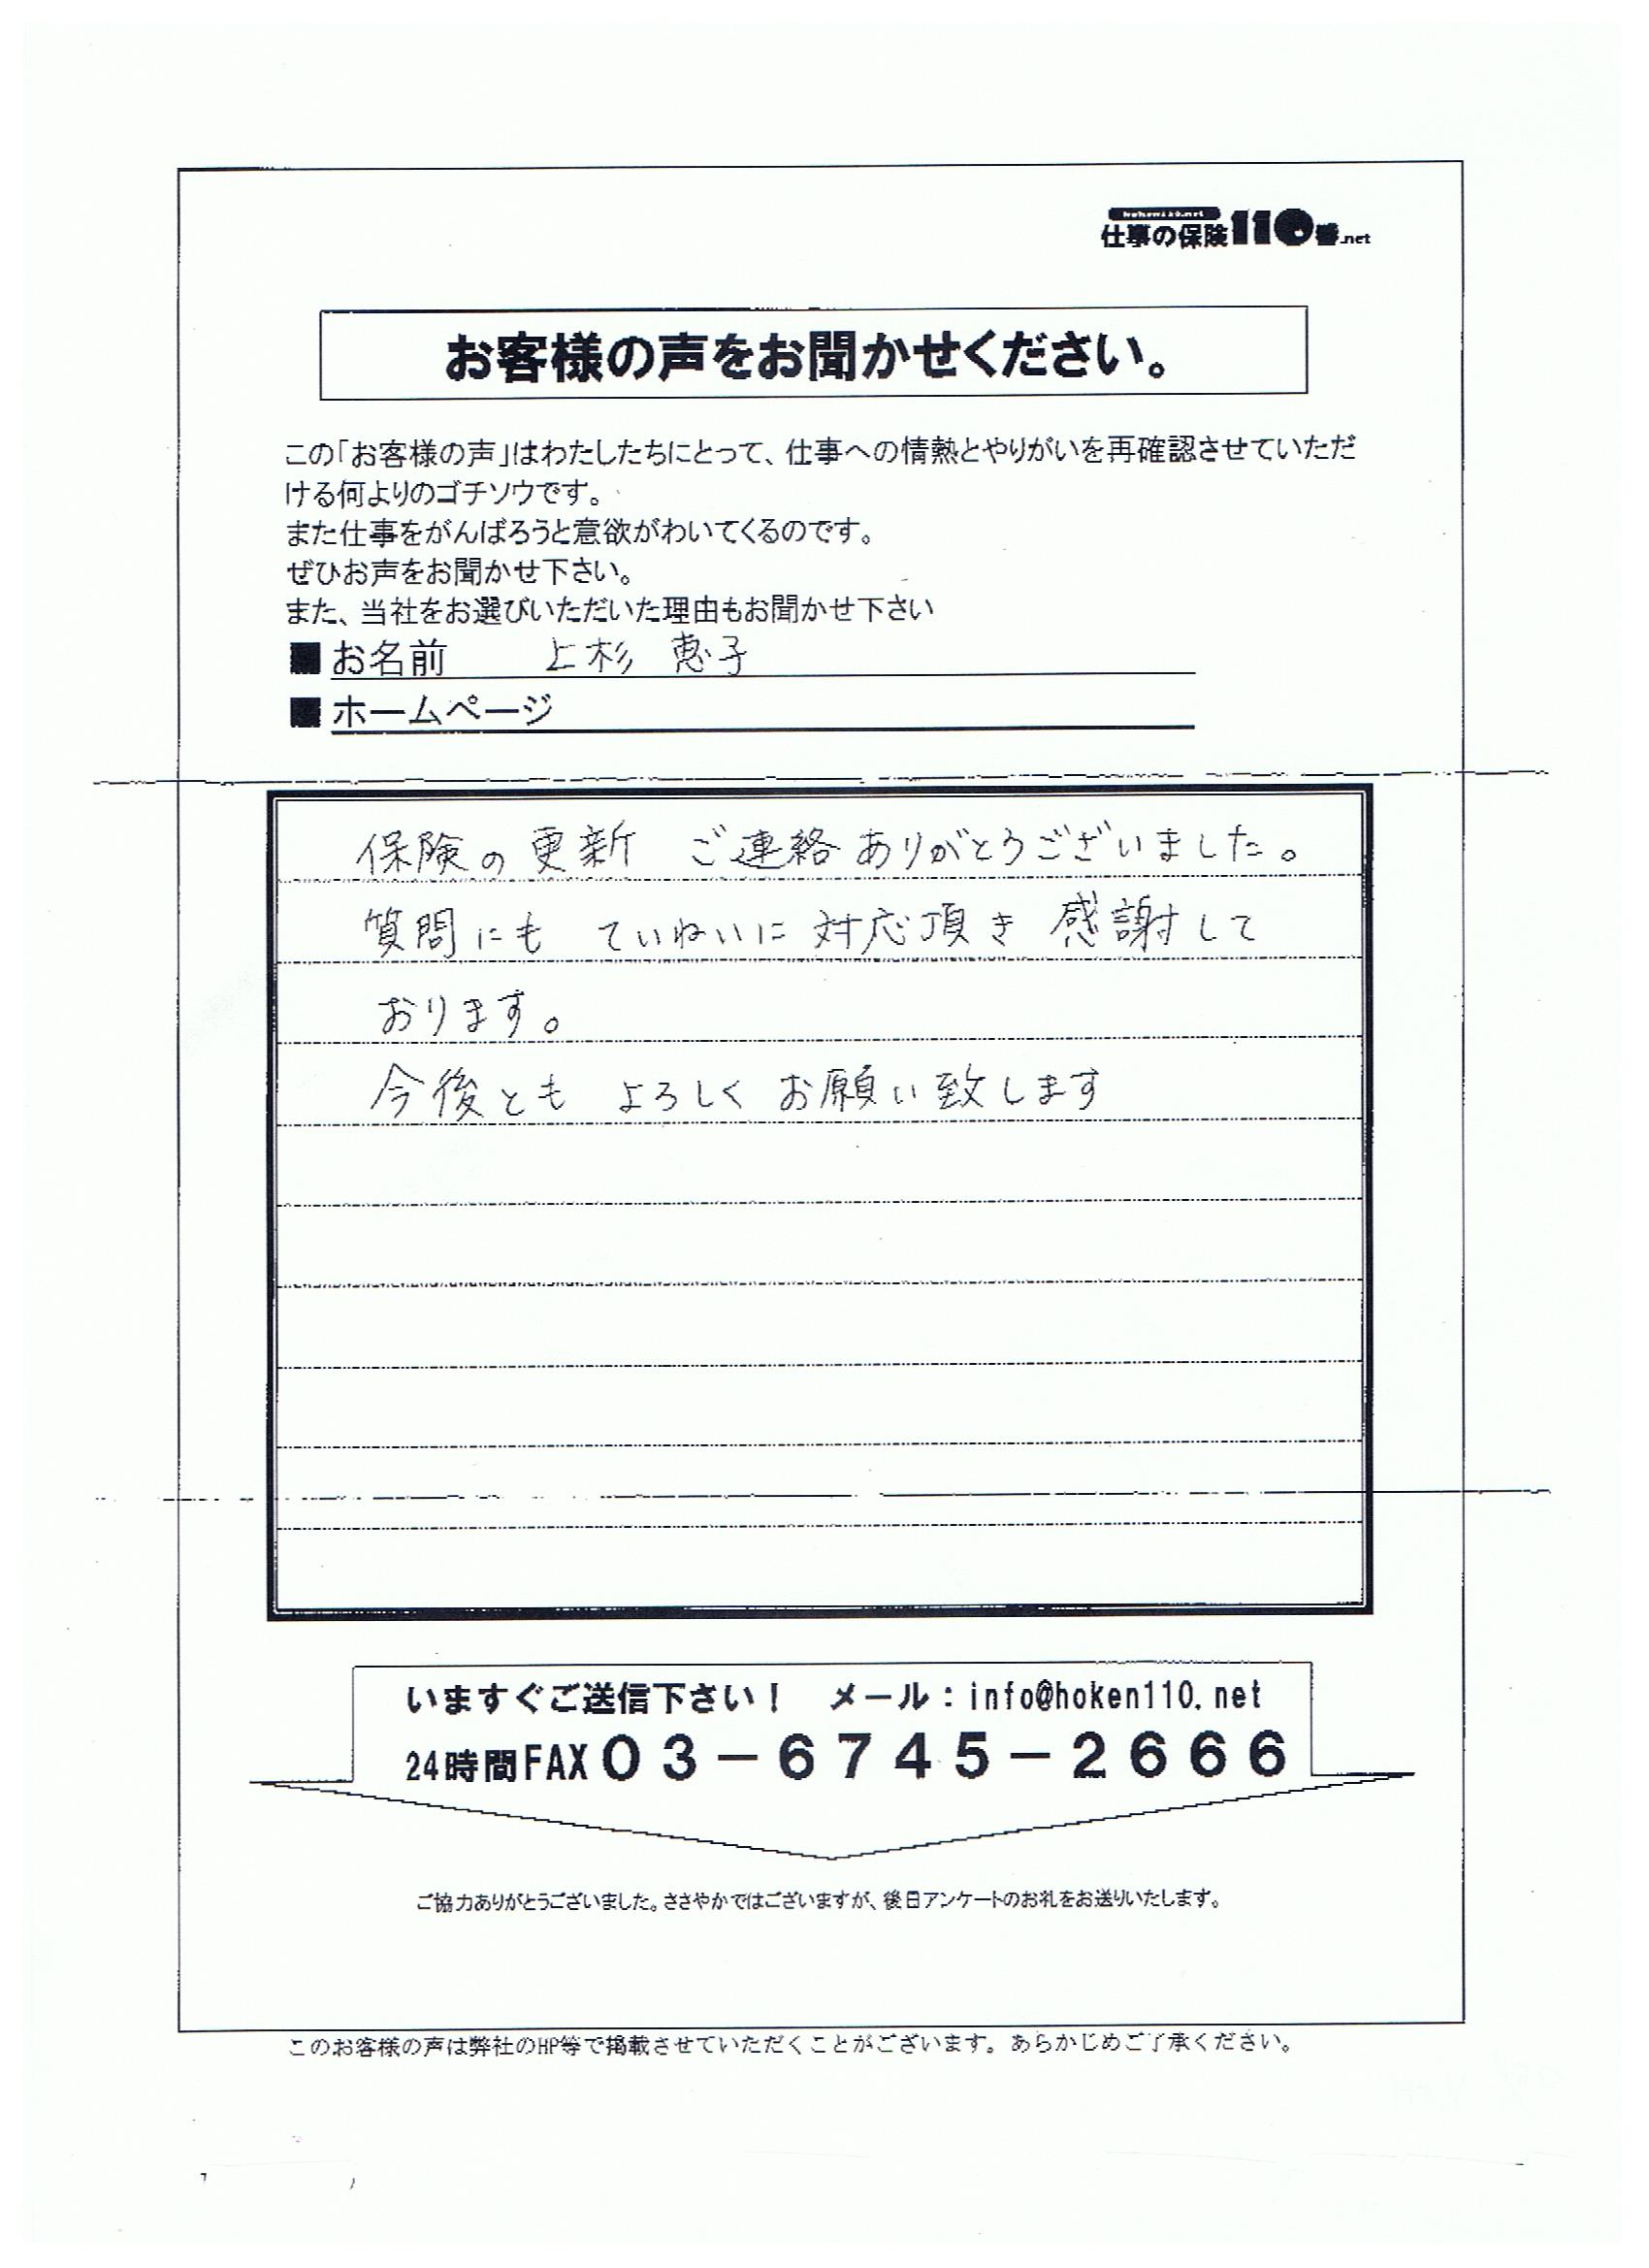 hoken110.net
仕事の保険110番.net
お客様の声をお聞かせください。
この「お客様の声」はわたしたちにとって、仕事への情熱とやりがいを再確認させていただ
ける何よりのゴチソウです。
また仕事をがんばろうと意欲がわいてくるのです。
ぜひお声をお聞かせ下さい。
また、当社をお選びいただいた理由もお聞かせ下さい
■お名前 上杉 恵子
■ホームページ
保険の更新 ご連絡ありがとうございました。
質問にも ていねいに 対応頂き 感謝して
おります。
今後とも よろしく お願い致します
いますぐご送信下さい！ メール：info@hoken110.net
24時間FAX０３－６７４５－２６６６
ご協力ありがとうございました。ささやかではございますが、後日アンケートのお礼をお送りいたします。
このお客様の声は弊社のHP等で掲載させていただくことがございます。あらかじめご了承ください。